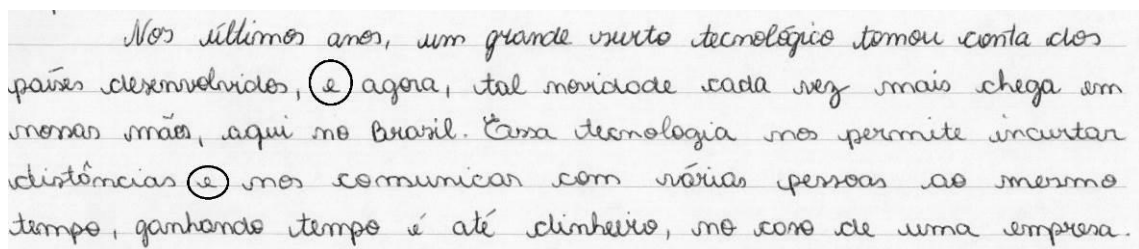 Nos últimos anos, um grande surto tecnológico tomou conta dos
países desenvolvidos, e agora, tal novidade cada vez mais chega em
nossas mãos, aqui no Brasil. Essa tecnologia nos permite incurtar
distâncias e nos comunicar com várias pessoas ao mesmo
tempo, ganhando tempo é até dinheiro, no caso de uma empresa.